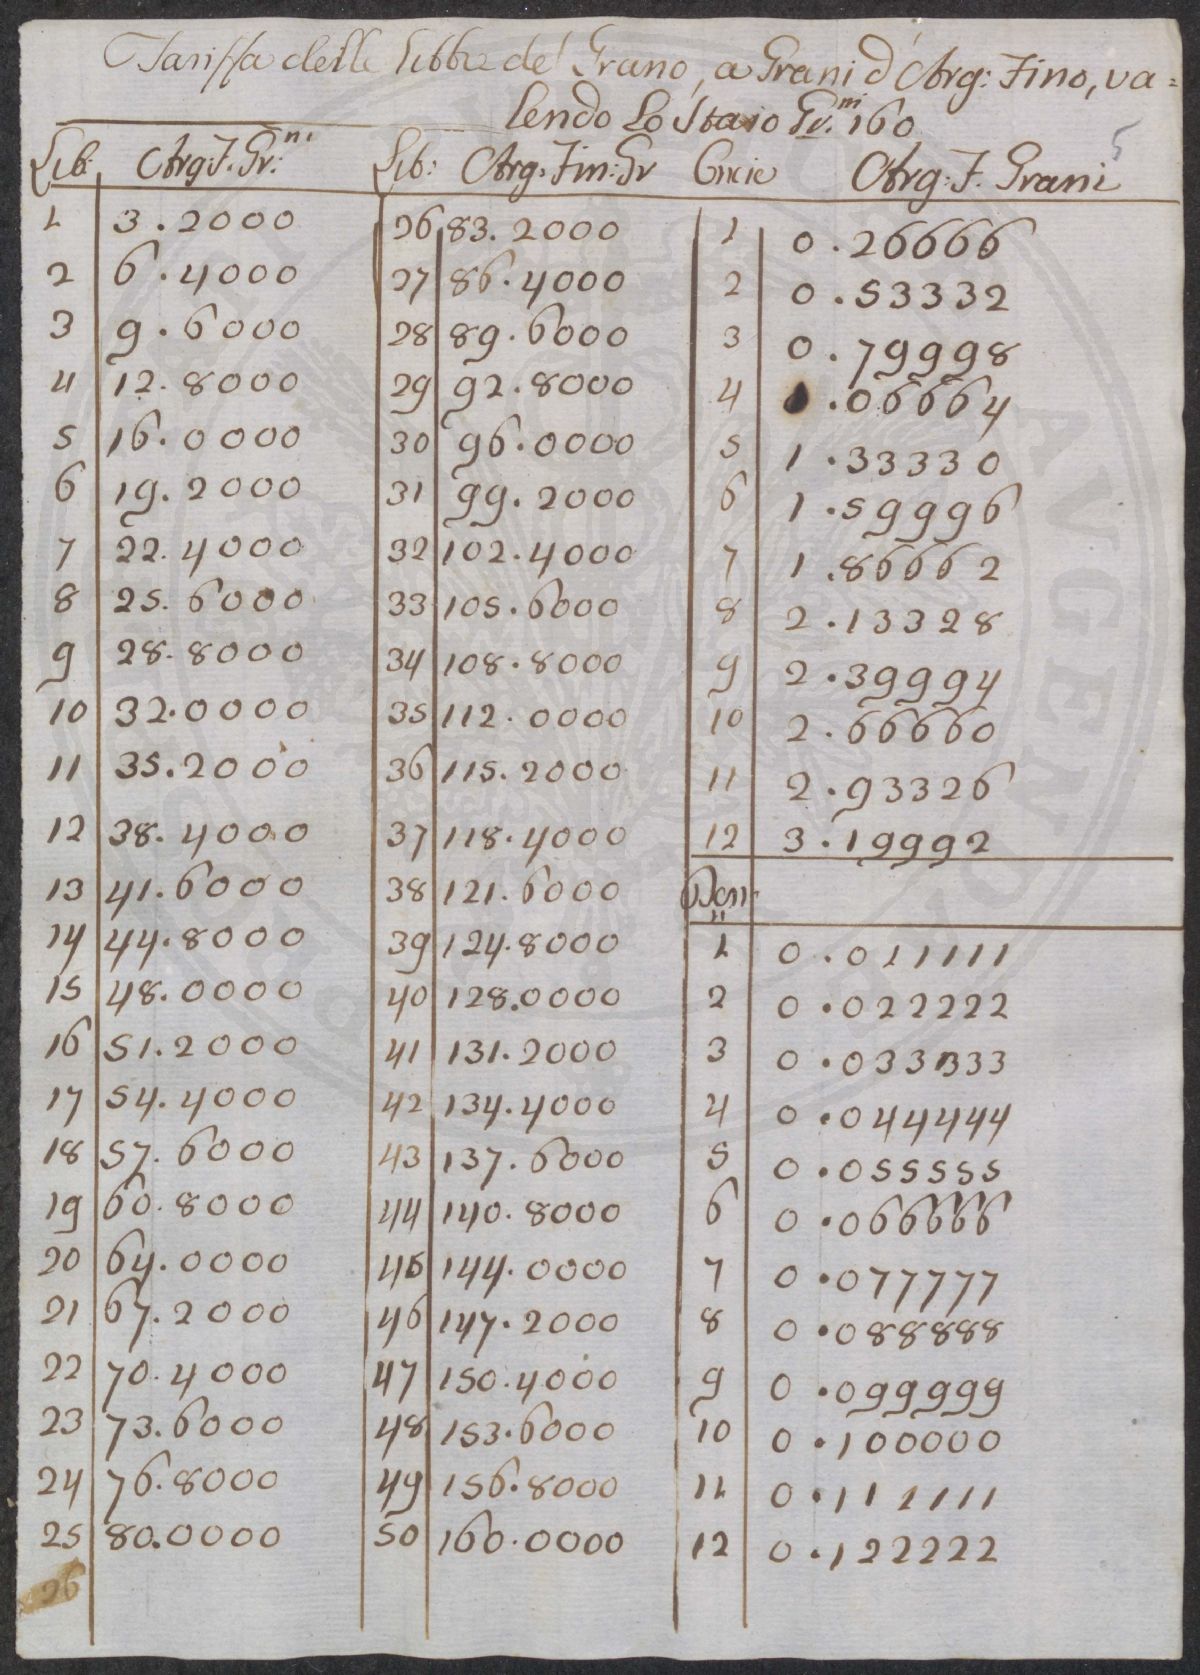 Tariffa delle Libbre de' Grano, a Grani d'Arg: Fino, va=
lendo Lo Staio Gr.ni 160
5
Lib: Arg: F. Gr:ni Lib: Arg: Fin: Gr Oncie Arg: F. Grani
1 3.2000 26 83.2000 1 0.26666
2 6.4000 27 86.4000 2 0.53332
3 9.6000 28 89.6000 3 0.79998
4 12.8000 29 92.8000 4 1.06664
5 16.0000 30 96.0000 5 1.33330
6 19.2000 31 99.2000 6 1.59996
7 22.4000 32 102.4000 7 1.86662
8 25.6000 33 105.6000 8 2.13328
9 28.8000 34 108.8000 9 2.39994
10 32.0000 35 112.0000 10 2.66660
11 35.2000 36 115.2000 11 2.93326
12 38.4000 37 118.4000 12 3.19992
13 41.6000 38 121.6000 Den:
14 44.8000 39 124.8000 1 0.011111
15 48.0000 40 128.0000 2 0.022222
16 51.2000 41 131.2000 3 0.033333
17 54.4000 42 134.4000 4 0.044444
18 57.6000 43 137.6000 5 0.055555
19 60.8000 44 140.8000 6 0.066666
20 64.0000 45 144.0000 7 0.077777
21 67.2000 46 147.2000 8 0.088888
22 70.4000 47 150.4000 9 0.099999
23 73.6000 48 153.6000 10 0.100000
24 76.8000 49 156.8000 11 0.111111
25 80.0000 50 160.0000 12 0.122222
26